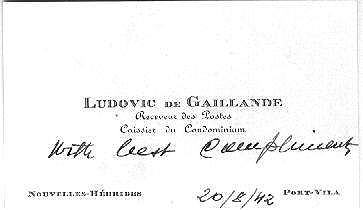 LUDOVIC DE GAILLANDE
Receveur des Postes
Caissier du Condominium
With best Compliments
NOUVELLES-HÉBRIDES 20/8/42 PORT-VILA